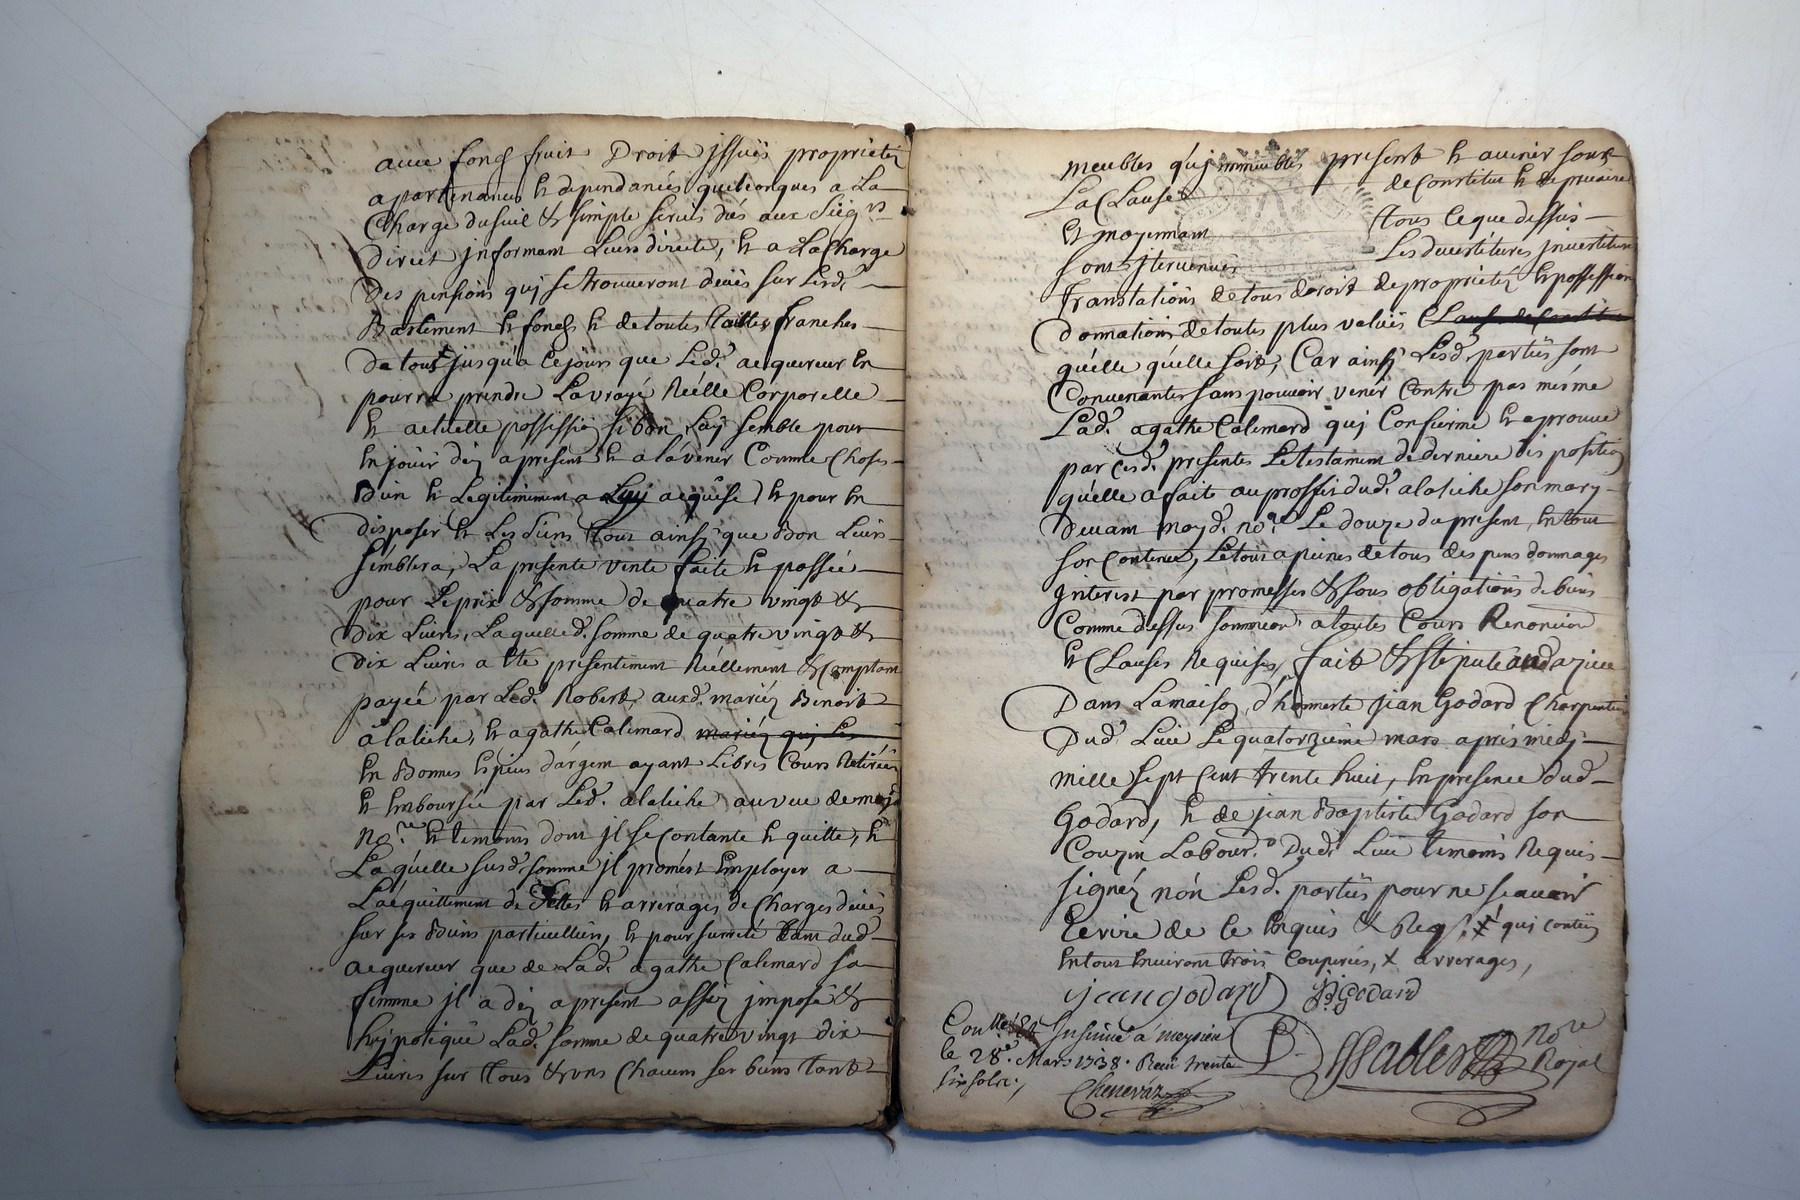 avec fond fruit Droit issuës proprietez
apartenances et dependances quelconques a La
Charge du seul & simple servis dus aux Seigrs
Direct informant Leurs directe, et a La Charge
Des pensions qui se trouveront deües sur Lesd.
Bastiment et fonds et de toutes tailles franches
De tout jusqu'a ce jours que Led. acquereur en
pourra prendre La vraye Réelle Corporelle
et actuelle possession si bon Luy semble pour
en jouir déz apresent et a l'avenir Comme Choses
Bien et Legitimement a Luy acquise, et pour en
disposer et Les siens tout ainsy que Bon Leurs
semblera, La presente vente faite et passée
pour Le prix & somme de quatre vingt &
dix Livres, Laquelle d. somme de quatre vingt &
dix Livres a ete presentement Réellement & Comptant
payée par Led. Robert, auxd. mariéz Benoit
alatiche, et agathe Calemard mariéz qui Les
en Bonnes Especes d'argent ayant Libres Cours Retirées
et Emboursée par Led. alatiche au vue de moyd.
nore et temoins dont jl se Contante et quitte, et
Laquelle susd. somme jl promest Employer a
L'acquittement de Dettes et arrérages de Charges deües
sur ses Biens particulliers, et pour sureté tant dud.
acquereur que de Lad. agathe Calemard sa
femme jl a déz apresent assez imposé &
hipotiqué Lad. somme de quatre vingt dix
Livres sur tous & uns Chacuns ses biens tant
meubles qu'immeubles present et avenir sous
La Clause de Constitut et de precaire
et moyennant tous ce que dessus
sont Jtervenües Les devestitures investitures
Translations de tous droit de proprietéz et possession
donnations de toutes plus values
qu'elle qu'elle soit, Car ainsy Lesd. parties sont
Convenantes sans pouvoir venir Contre pas mesme
Lad. agathe Calemard qui Confirme et aprouve
par cesd. presentes Le testament de derniere disposition
qu'elle a faite au proffit dud. alatiche son mary
Devant moyd. nore Le douze du present, en tout
son Contenu, Le tout a peines de tous despens dommages
interest par promesses & sous obligations de biens
Comme dessus soumission a toutes Cours Renonciaon
et Clauses Requises, fait & stipulé
Dans La maison d'honneste jean Godard Charpentier
Dud. Lieu Le quatorzieme mars aprés midy
mille sept Cent trente huit, En presence dud.
Godard, et de jean Baptiste Godard son
Couzin Labour. Dud. Lieu temoins Requis
signéz non Lesd. parties pour ne sçavoir
Ecrire de ce Enquis & Reqs. qui contien
en tout environt trois Couperies, x arrerages,
jean godard JB Godard
Coulle 84 Insinué a
le 28e. Mars 1738. Recu trente
six sols.
Chenevaz
Sablon Nore
Royal